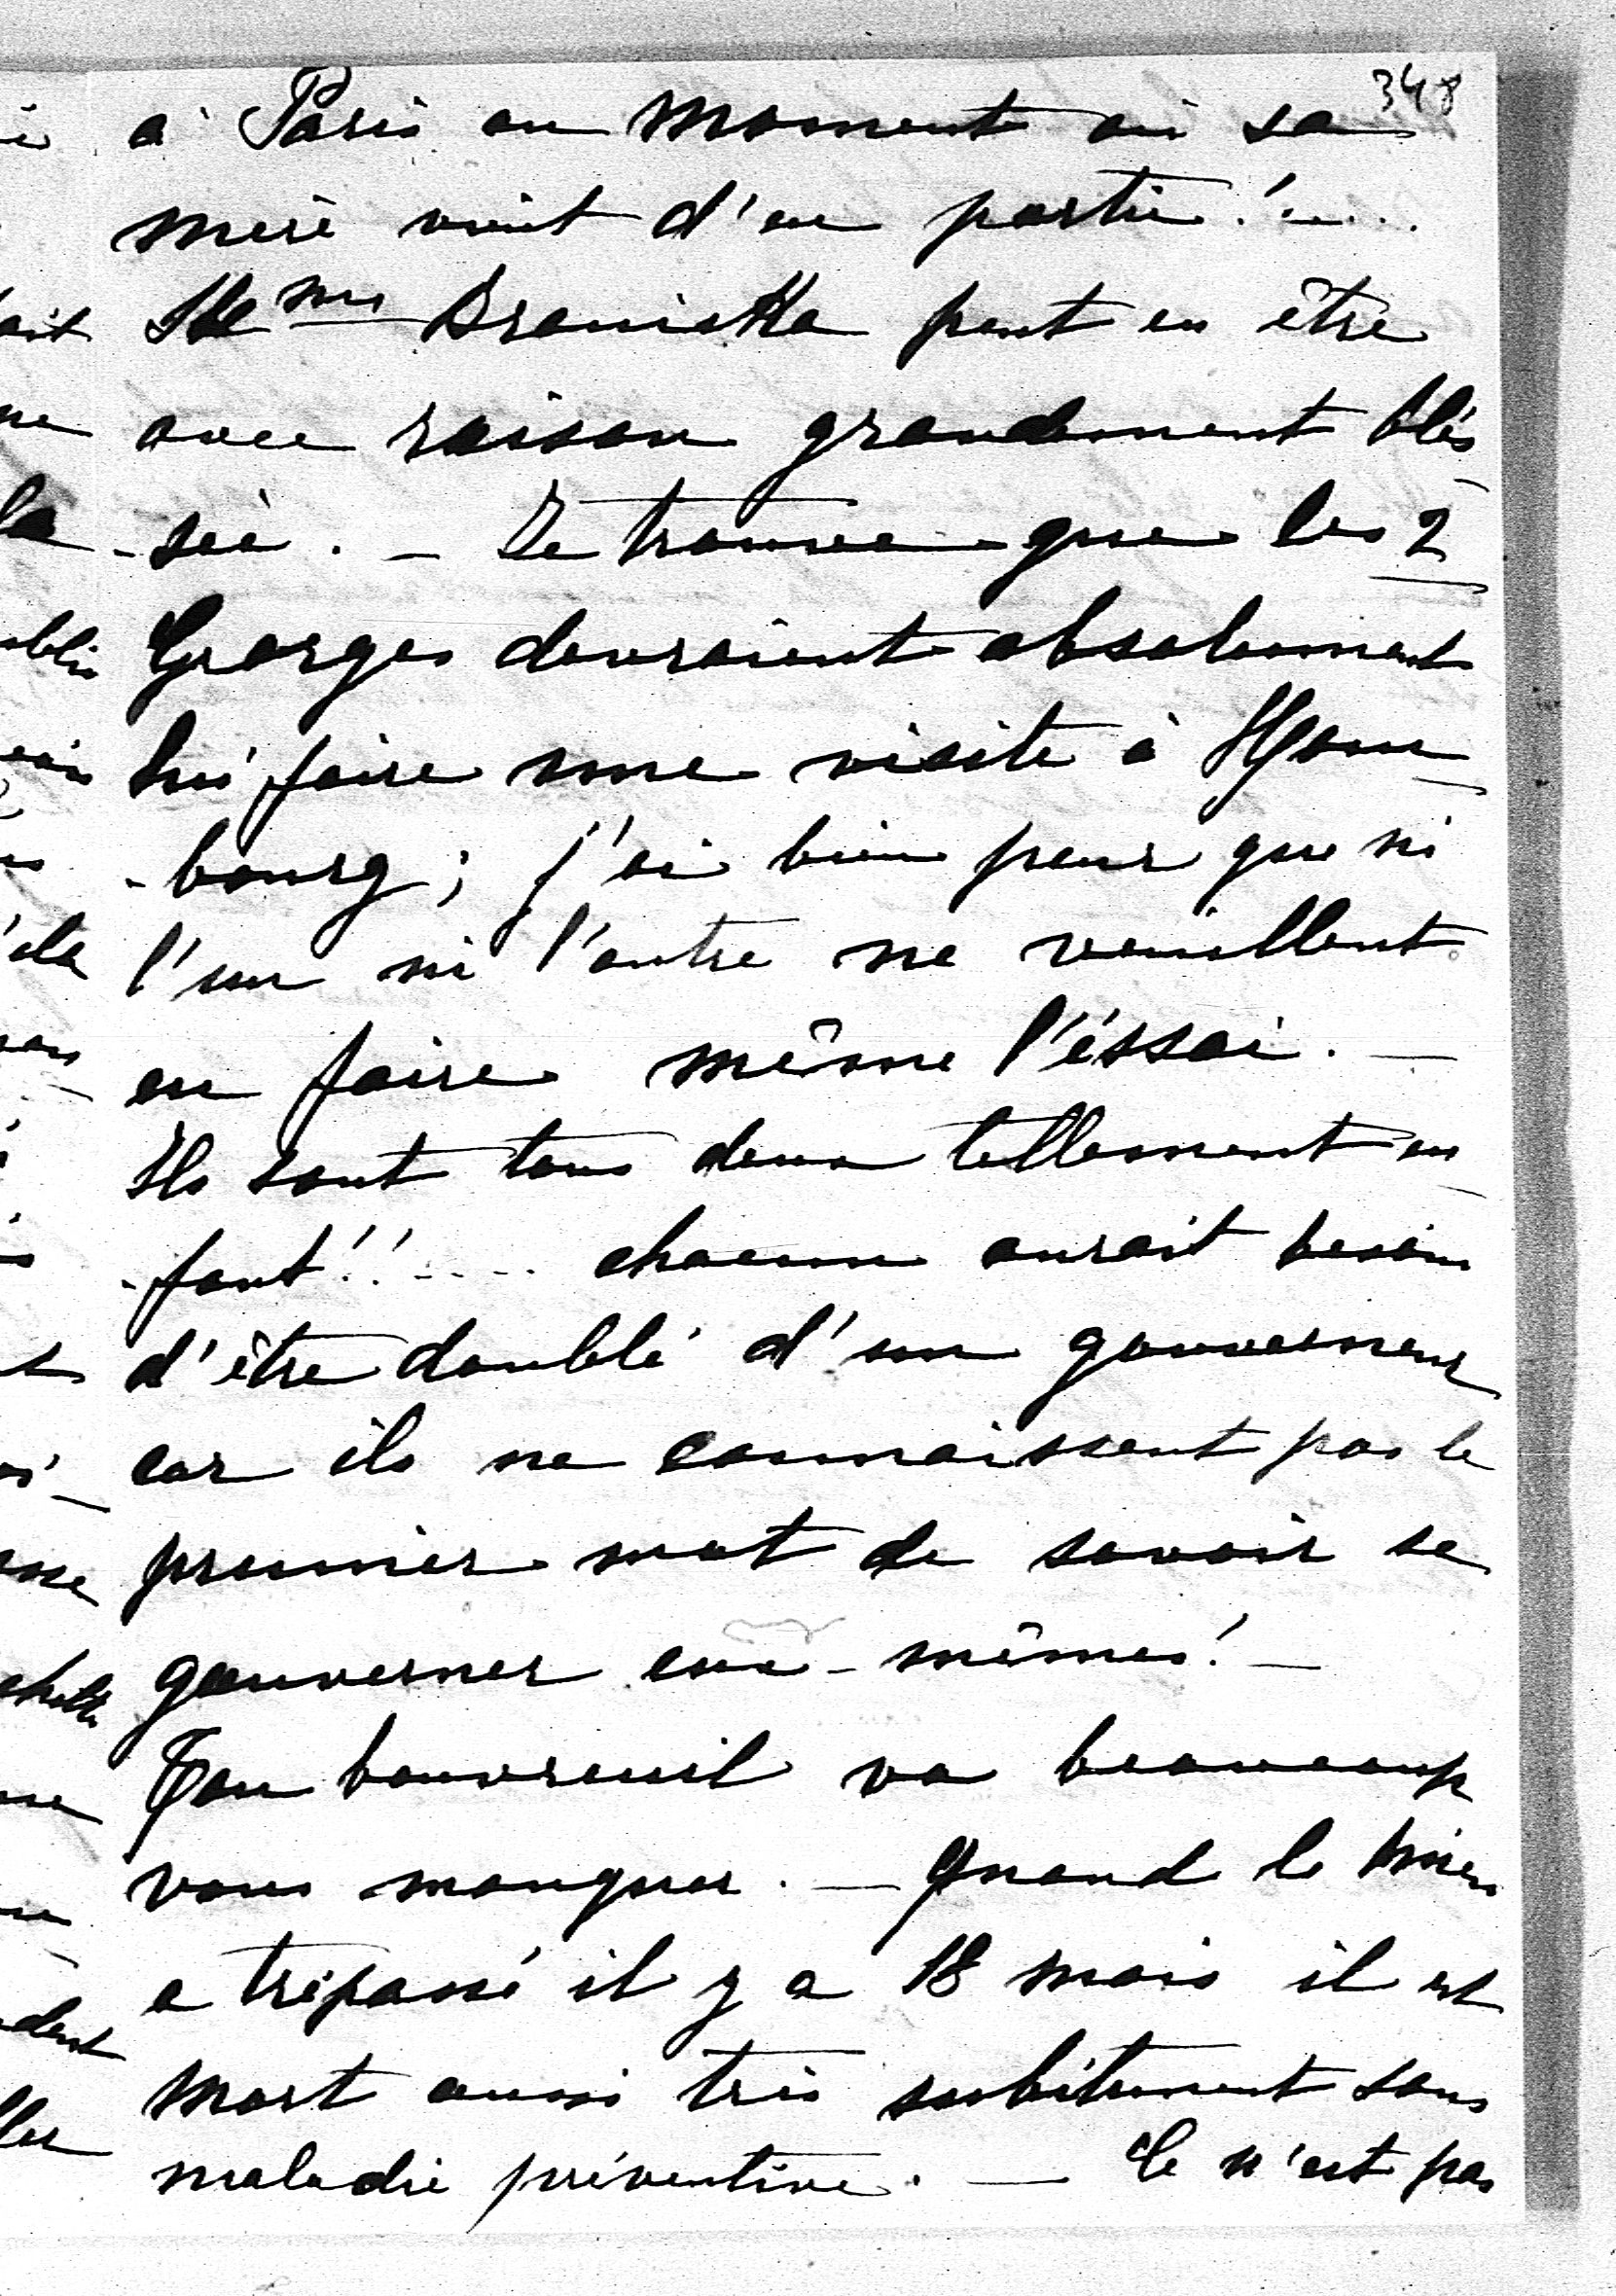 348
à Paris au moment où sa
mère vient d'en partir!....
Mme Branicka peut en être
avec raison grandement blès
-sée. — Je trouve que les 2
Georges devraient absolument
lui faire une visite à Hom
-bourg; j'ai bien peur que ni
l'un ni l'autre ne veuillent
en faire même l'éssai. —
Ils sont tous deux tellement en
-fant!!.... chacun aurait besoin
d'être doublé d'un gouverneur
car ils ne connaissent pas le
premier mot de savoir se
gouverner eux-mêmes! —
Ton bouvreuil va beaucoup
vous manquer. — Quand le mien
a trépassé il y a 18 mois il est
mort aussi très subitement sans
maladie préventive. — Ce n'est pas